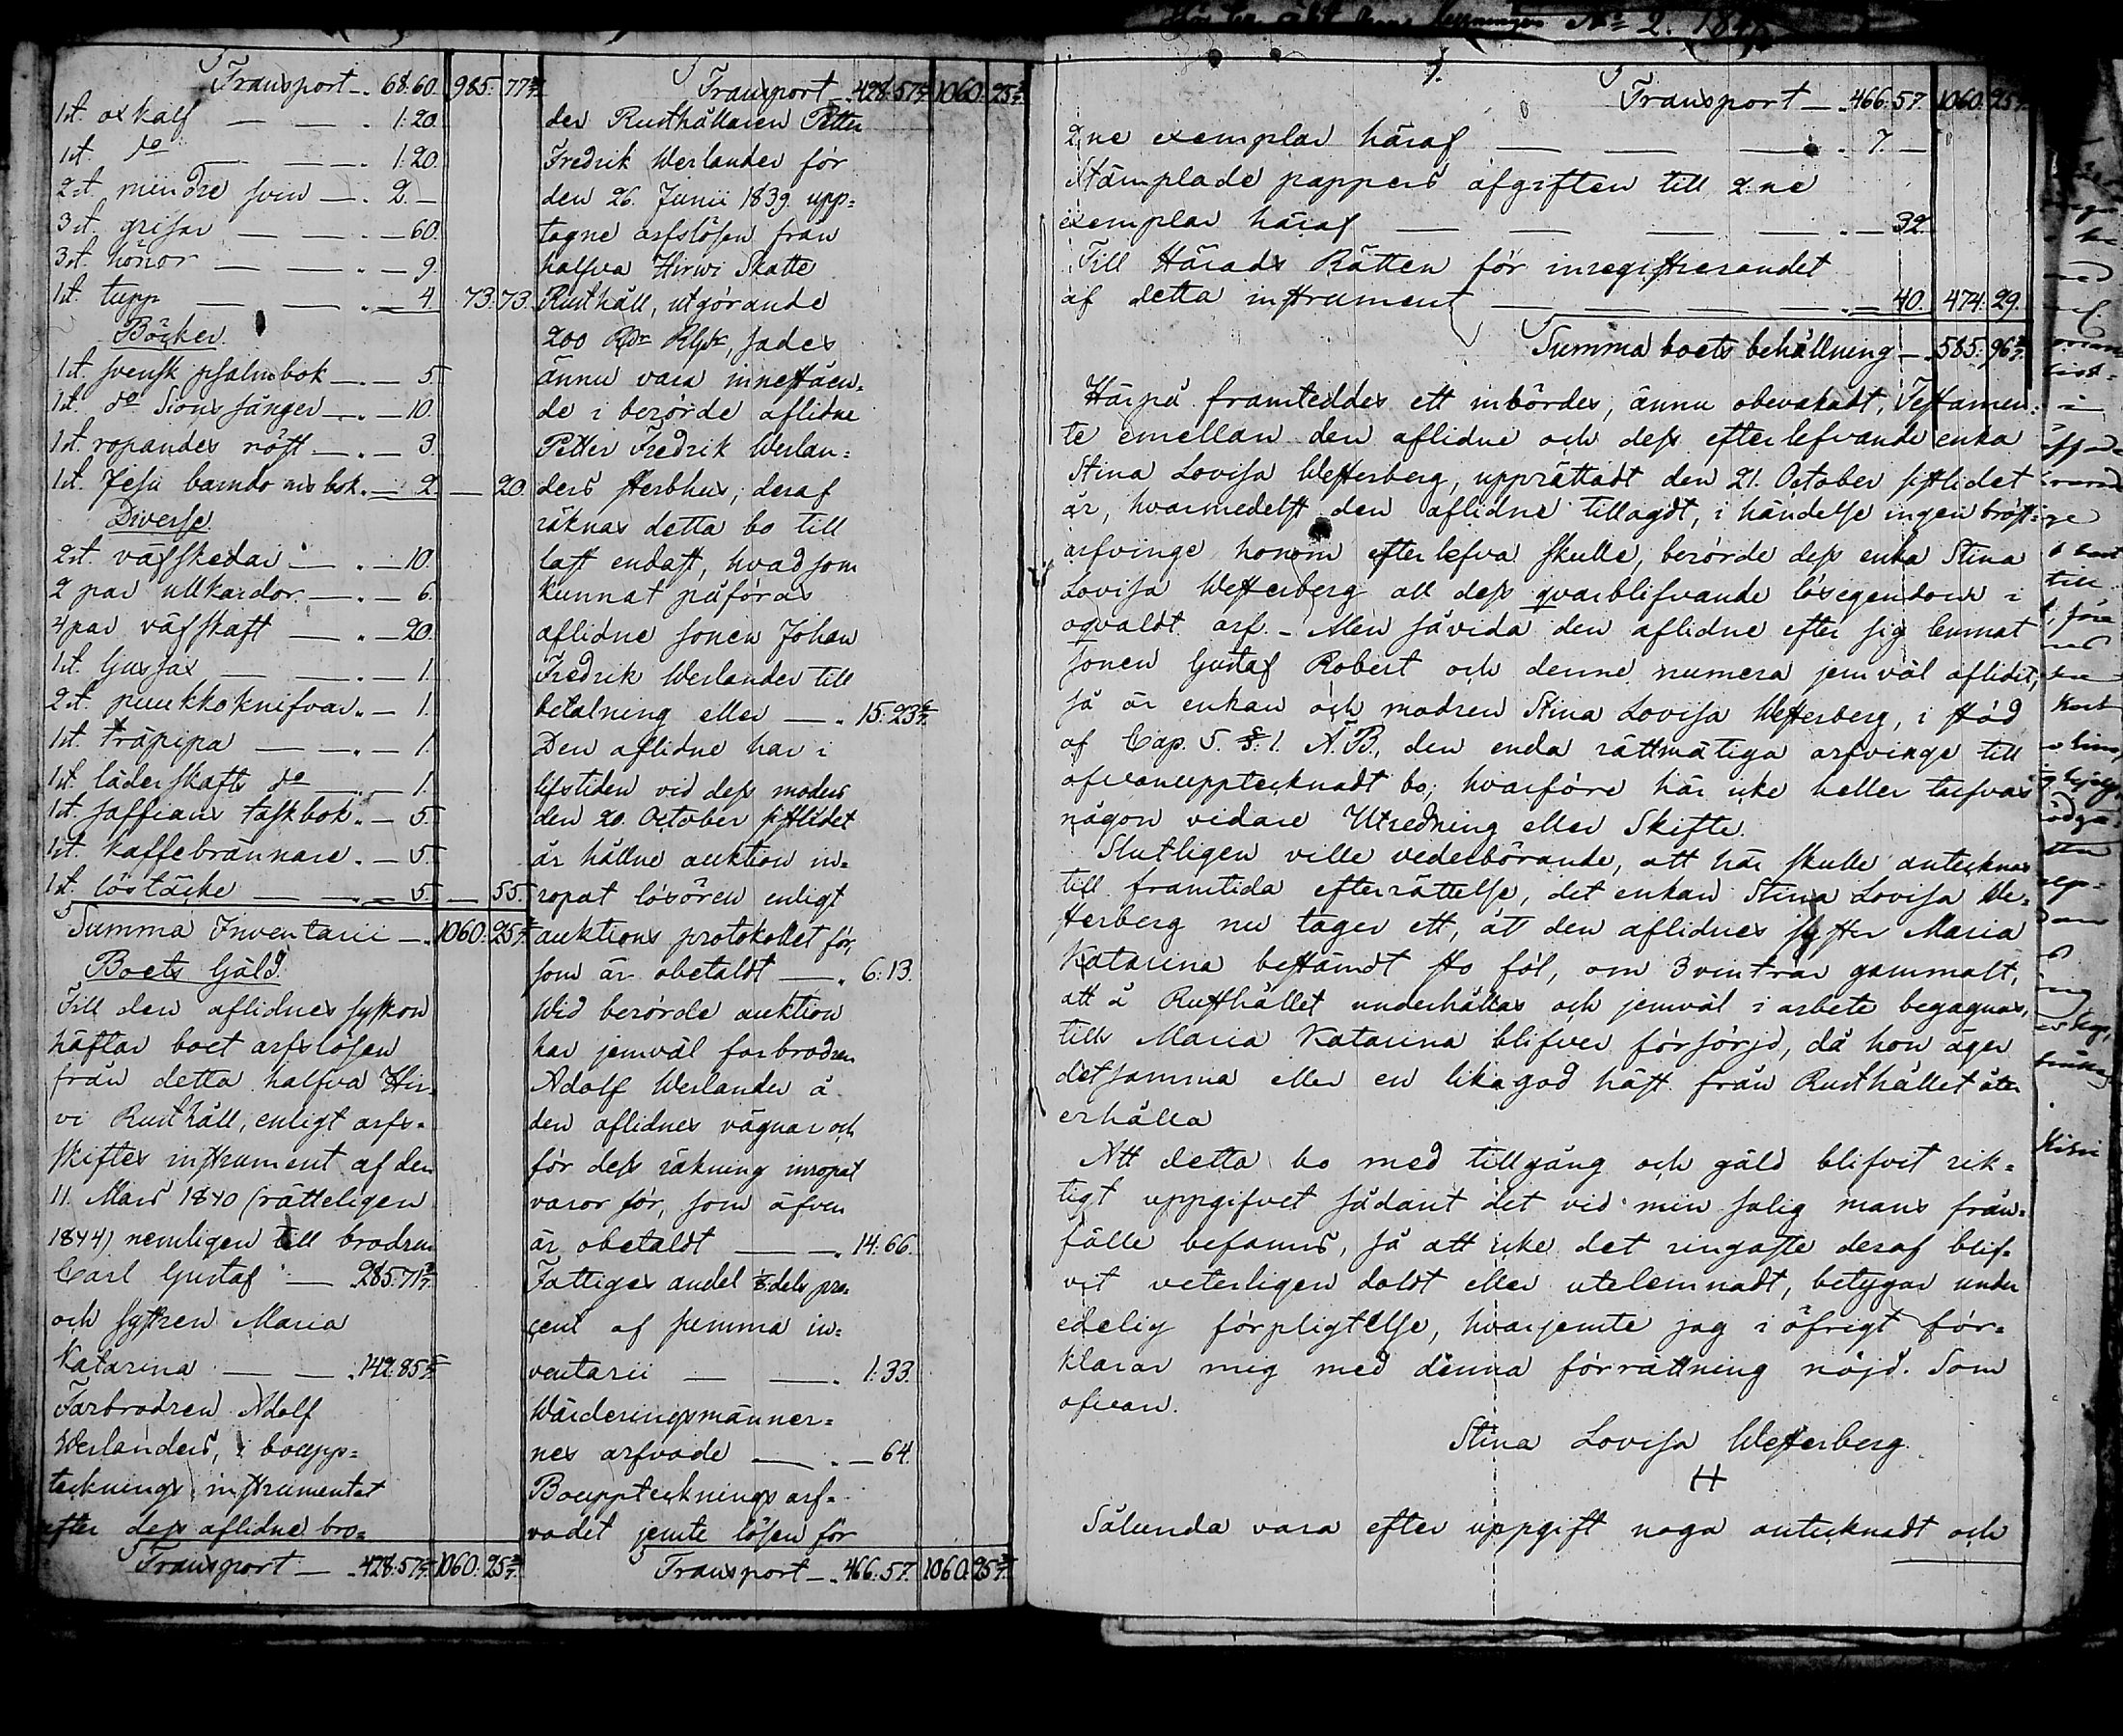 Transport — 68.60. 985. 77 6/7.
1 st. oxkalf — — 1.20.
1 st. do — — 1.20.
2 st. mindre svin — 2. —
3 st. grisar — — 60.
3 st. hönor — — 9.
1 st. tupp — — 4. 73.73.
Böcker.
1 st. svensk psalmbok — 5.
1 st. do Sions sånger — 10.
1 st. ropandes röst — 3.
1 st. Jesu barndoms bok — 2. — 20.
Diverse.
2 st. väfskedar — 10.
2 par ullkardor — 6.
4 par väfskaft — 20.
1 st. ljussax — — 1.
2 st. puukkoknifvar — 1.
1 st. träpipa — — 1.
1 st. läderskafts do — 1.
1 st. saffians taskbok — 5.
1 st. kaffebrännare — 5.
1 st. löstäcke — — 5. — 55.
Summa Inventarii — 1060. 25 6/7.
Boets Gäld.
Till den aflidnes syskon
häftar boet arfslösen
från detta halfva Hir-
vi Rusthåll, enligt arfs-
skiftes instrument af den
11. Mars 1840 (rätteligen
1844) nemligen till brodren
Carl Gustaf — 285.71 3/7.
och systren Maria
Katarina — — 142.85 5/7.
Farbrodren Adolf
Werlanders, i boupp-
tecknings instrumentet
efter dess aflidne bro-
Transport — 428.57 1/7. 1060. 25 6/7.
Transport — 428.57 1/7. 1060. 25 6/7.
der Rusthållaren Petter
Fredrik Werlander för
den 26. Junii 1839 upp-
tagne arfslösen från
halfva Hirwi Skatte
Rusthåll, utgörande
200 Rdr Rgds, sades
ännu vara innestäen-
de i berörde aflidne
Petter Fredrik Werlan-
ders sterbhus; deraf
räknas detta bo till
last endast, hvad som
kunnat påföras
aflidne sonen Johan
Fredrik Werlander till
betalning eller — 15.23 6/7.
Den aflidne har i
lifstiden vid dess moders
den 20. October sistlidet
år hållne auktion in-
ropat lösören enligt
auktions protokollet för,
som är obetaldt — 6.13.
Wid berörde auktion
har jemväl farbrodren
Adolf Werlander å
den aflidnes vägnar och
för dess räkning inropat
varor för, som äfven
är obetaldt — 14.66.
Fattiges andel 1/8 dels pro-
cent af summa in-
ventarii — — 1.33.
Wärderingsmänner-
nes arfvode — — 64.
Bouppteknings arf-
vodet jemte lösen för
Transport — 466.57. 1060. 25 6/7.
No 2.
Transport — 466.57. 1060. 25 6/7.
2ne exemplar häraf — — — 7. —
Stämplade pappers afgiften till 2:ne
exemplar häraf — — — — 32.
Till Härads Rätten för inregistrerandet
af detta instrument — — — 40. 474. 29.
Summa boets behållning — 585. 96 6/7.
Härpå framteddes ett inbördes, ännu obevakadt, Testamen-
te emellan den aflidne och dess efterlefvande enka
Stina Lovisa Westerberg, upprättadt den 21. October sistlidet
år, hvarmedelst den aflidne tillagdt, i händelse ingen bröst-
arfvinge honom efterlefva skulle, berörde dess enka Stina
Lovisa Westerberg all dess qvarblifvande lösegendom i
oqvaldt arf. – Men såvida den aflidne efter sig lemnat
sonen Gustaf Robert och denne numera jemväl aflidit,
så är enkan och modren Stina Lovisa Westerberg, i stöd
af Cap. 5. §. 1. Ä.B., den enda rättmätiga arfvinge till
ofvanupptecknadt bo; hvarföre här icke heller tarfvas
någon vidare Utredning eller Skifte.
Slutligen ville vederbörande, att här skulle antecknas
till framtida efterrättelse, det enkan Stina Lovisa We-
sterberg nu tager ett, åt den aflidnes syster Maria
Katarina bestämdt sto föl, om 3 vintrar gammalt,
att å Rusthållet underhållas och jemväl i arbete begagnas,
tills Maria Katarina blifver försörjd, då hon äger
detsamma eller en lika god häst från Rusthållet åter
erhålla
Att detta bo med tillgång och gäld blifvit rik-
tigt uppgifvet sådant det vid min salig mans från-
fälle befanns, så att icke det ringaste deraf blif-
vit veterligen doldt eller utelemnadt, betygar under
edelig förpligtelse, hvarjemte jag i öfrigt för-
klarar mig med denna förrättning nöjd. Som
ofvan.
Stina Lovisa Westerberg.
H
Sålunda vara efter uppgift noga antecknadt och